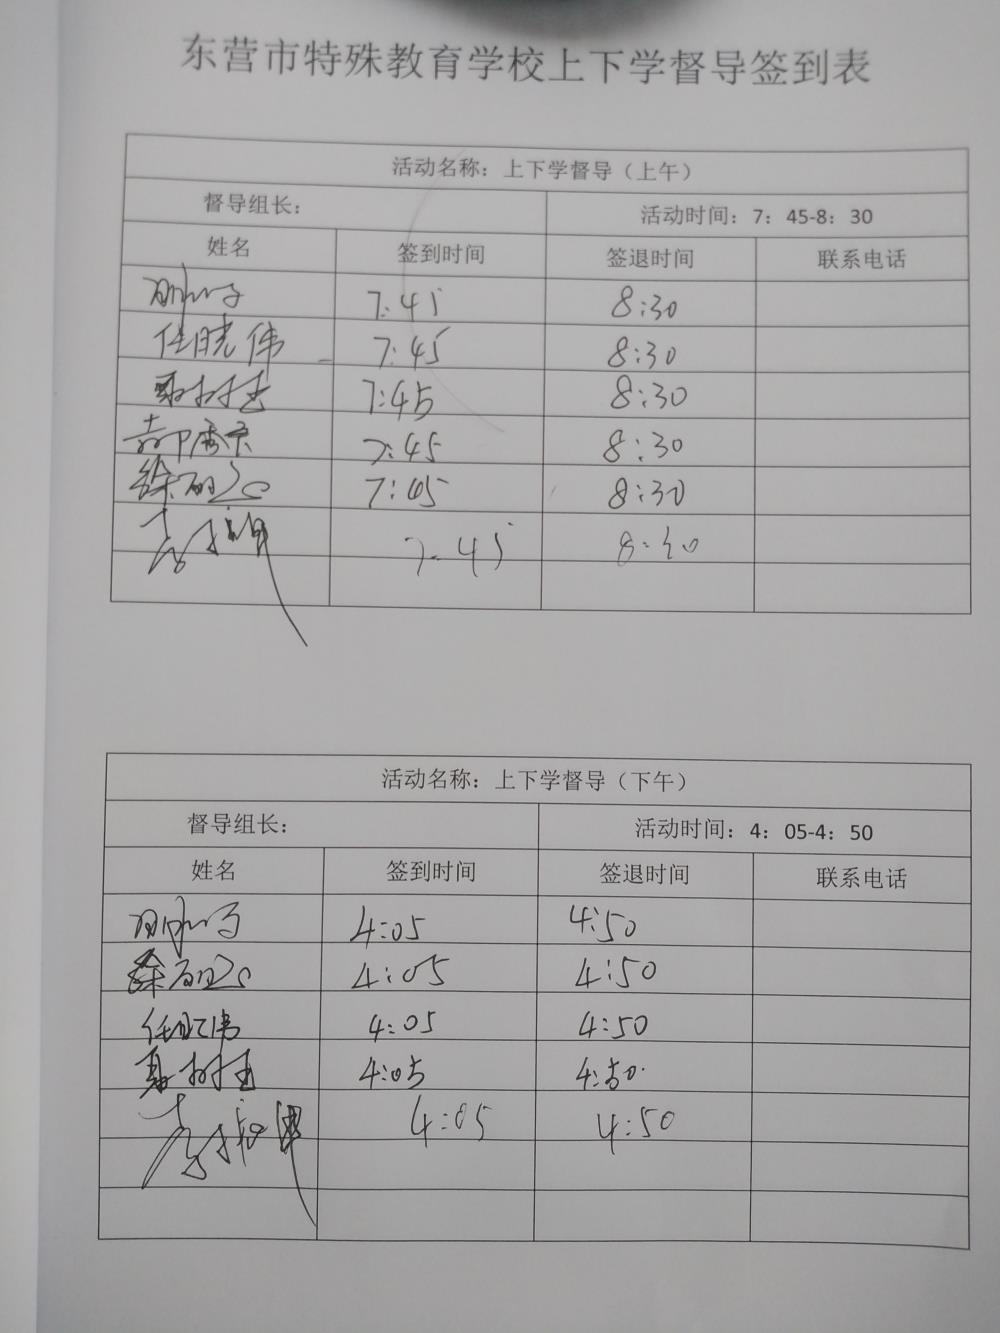 东营市特殊教育学校上下学督导签到表
活动名称：上下学督导（上午）
督导组长： 活动时间：7：45-8：30
姓名 签到时间 签退时间 联系电话
7:45 8:30
任晓伟 7:45 8:30
7:45 8:30
7:45 8:30
徐 7:45 8:30
7:45 8:30
活动名称：上下学督导（下午）
督导组长： 活动时间：4：05-4：50
姓名 签到时间 签退时间 联系电话
4:05 4:50
徐 4:05 4:50
任 伟 4:05 4:50
4:05 4:50
4:05 4:50